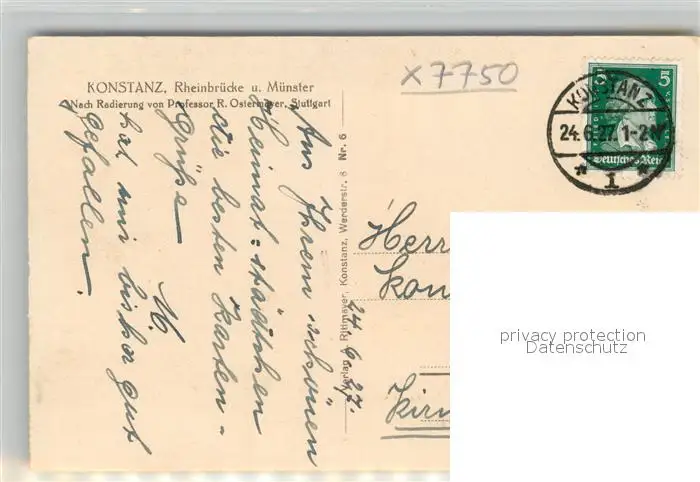 KONSTANZ, Rheinbrücke u. Münster
Nach Radierung von Professor R. Ostermayer, Stuttgart
x7750
5 5
Deutsches Reich
KONSTANZ
24.6.27. 1-2 N
* 1 *
Aus Ihrem schönen
Heimat-städtchen
die besten Karten-
Grüße
M.
hat mir bisher gut
gefallen.
24.6.27.
Verlag A. Rittmayer, Konstanz, Werderstr. 8 Nr. 6
Herr
Kon
privacy protection
Datenschutz